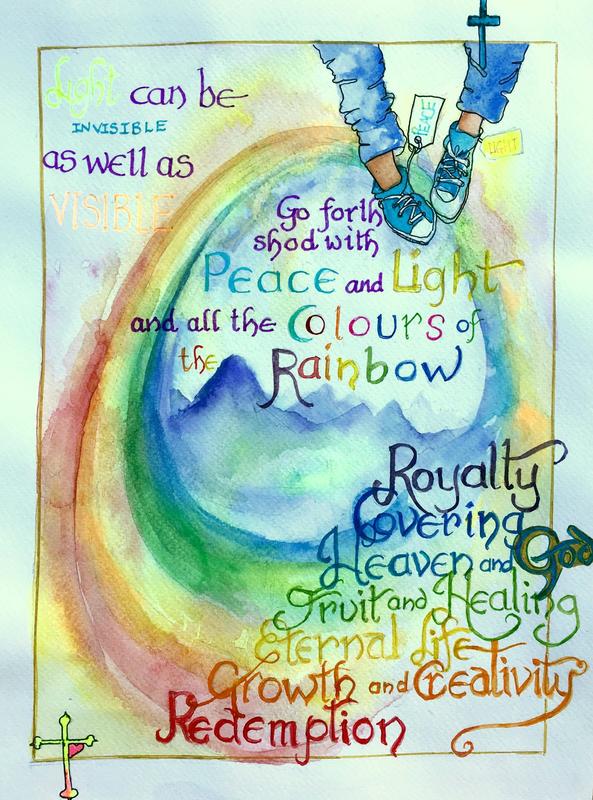 Light can be
INVISIBLE
as well as
VISIBLE
PEACE
LIGHT
Go forth
shod with
Peace and Light
and all the Colours of
the Rainbow
Royalty
Covering
Heaven and God
Fruit and Healing
Eternal Life
Growth and Creativity
Redemption